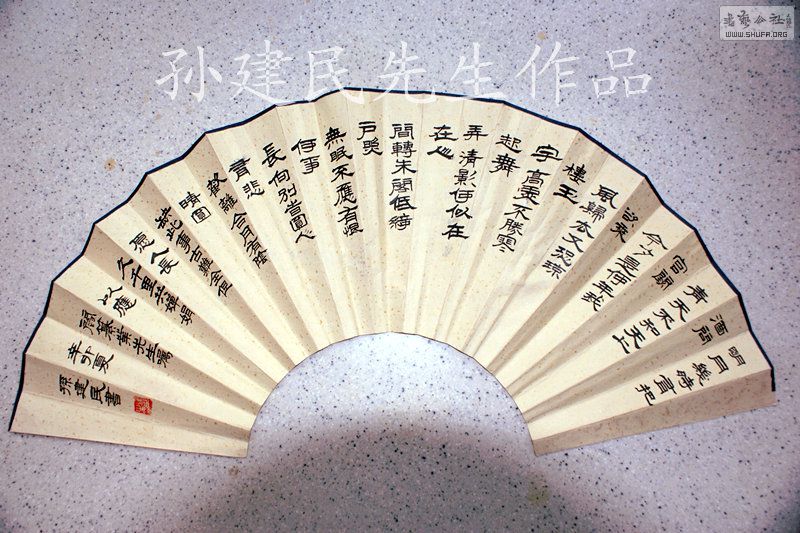 孙建民先生作品
WWW.SHUFA.ORG
明月幾時有把
酒問
青天不知天上
宮闕
今夕是何年我
欲乘
風歸去又恐瓊
樓玉
宇高處不勝寒
起舞
弄清影何似在
間轉朱閣低綺
戶
無眠不應有恨
何事
長向別當圓人
有悲
歡離合月有陰
晴圓
缺此事古難全但
願人長
久千里共嬋娟
以應
先生囑
辛卯夏
孫建民書